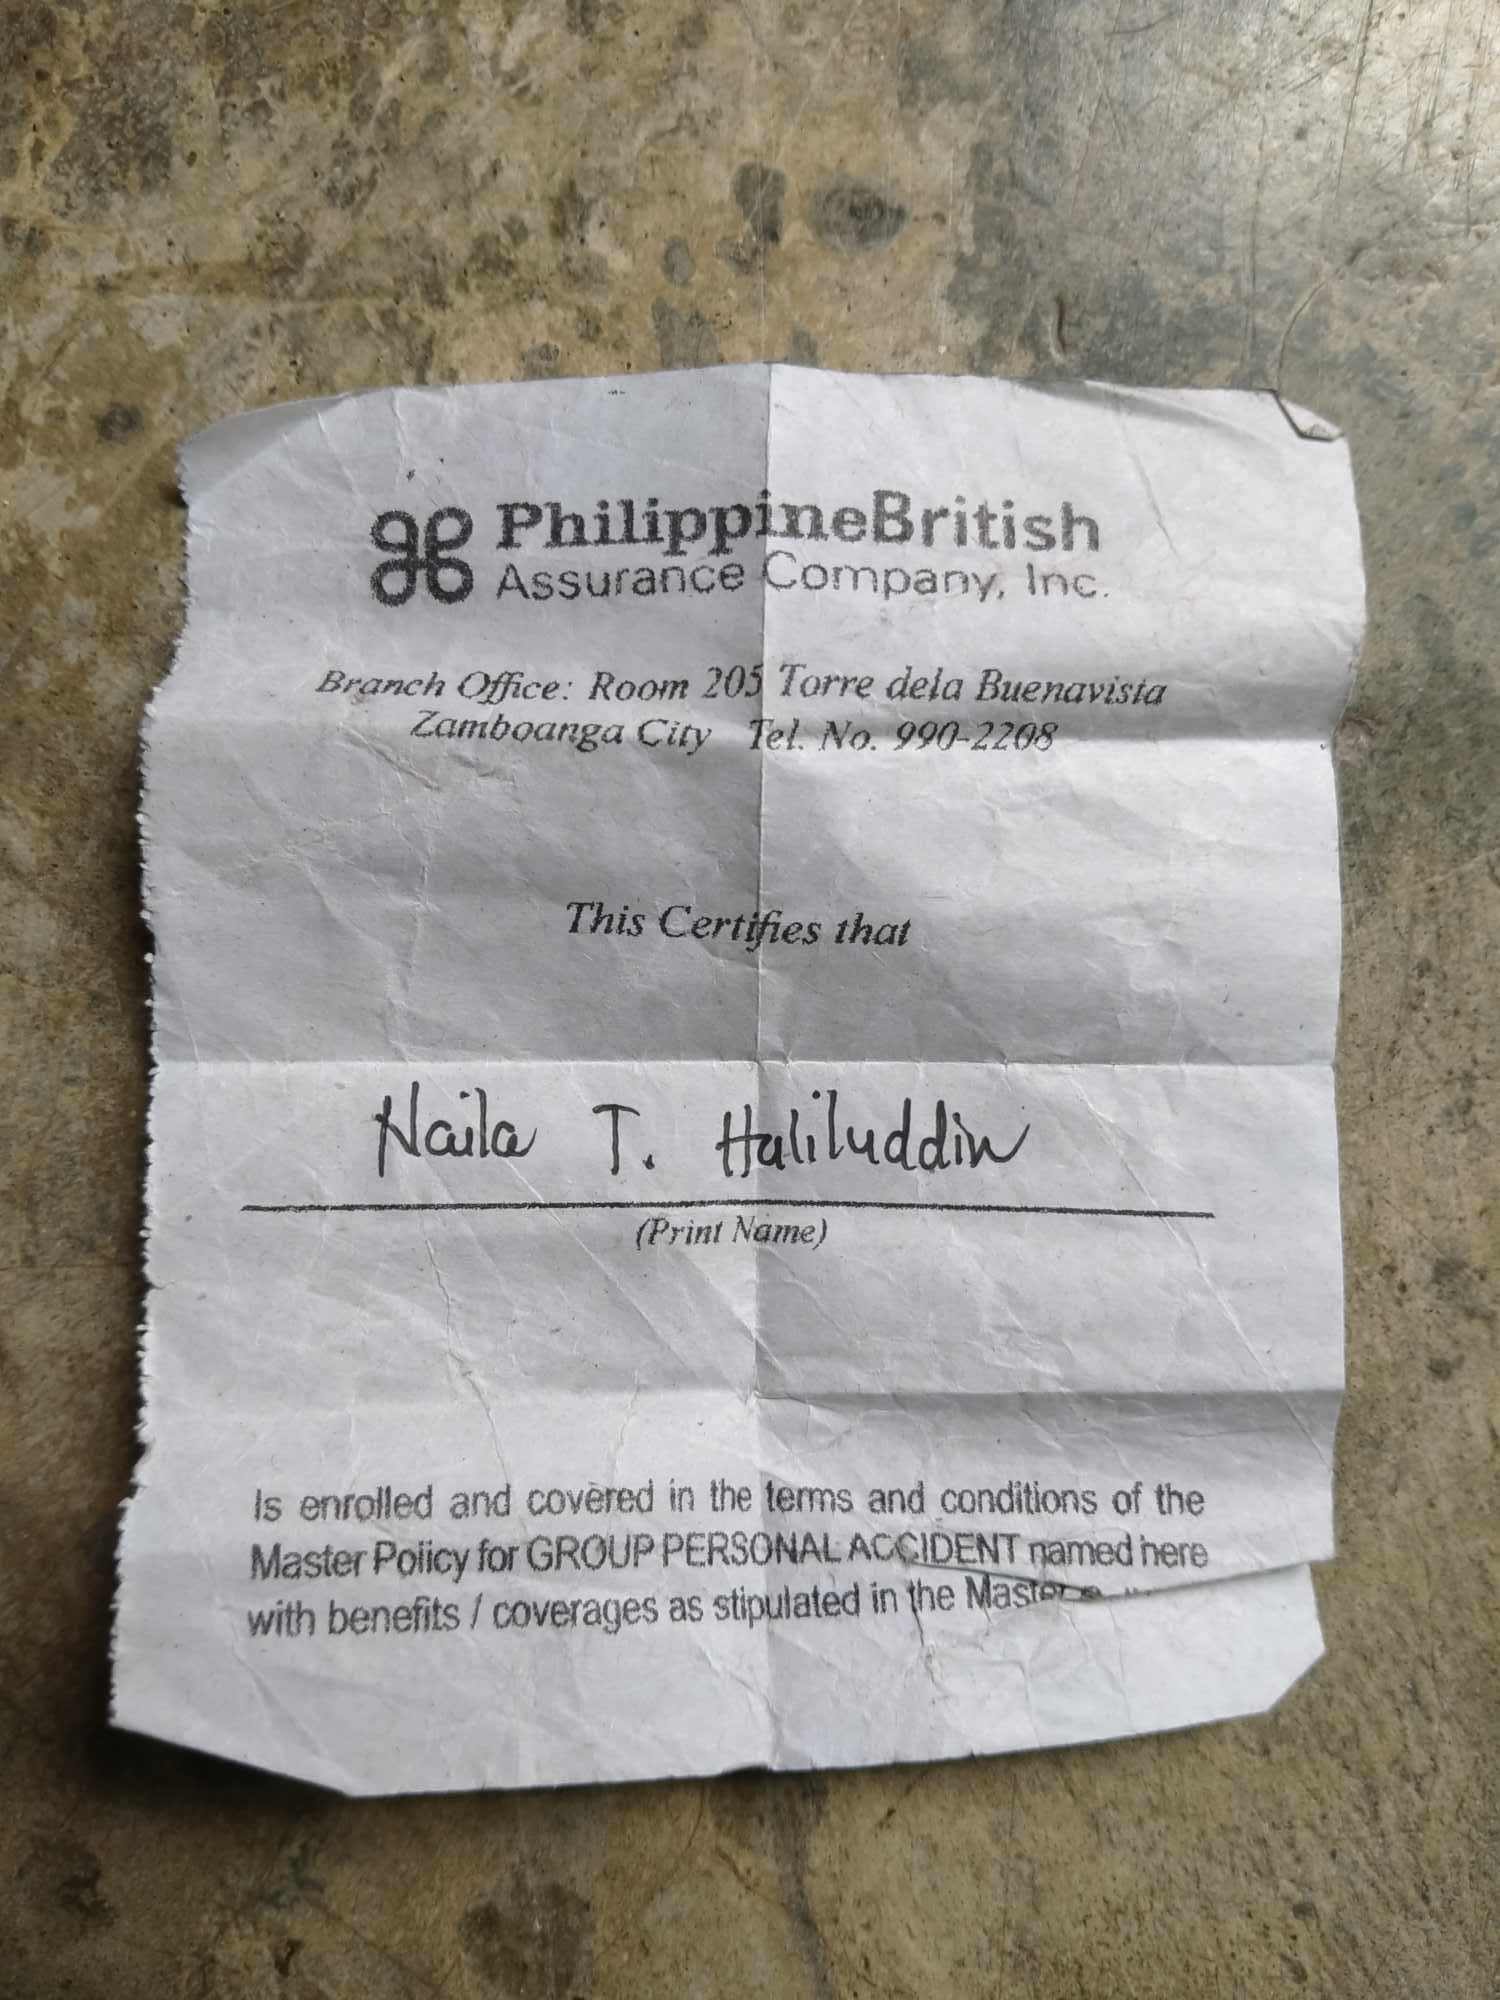 PhilippineBritish
Assurance Company, Inc.
Branch Office: Room 205 Torre dela Buenavista
Zamboanga City Tel. No. 990-2208
This Certifies that
Naila T. Haliluddin
(Print Name)
Is enrolled and covered in the terms and conditions of the
Master Policy for GROUP PERSONAL ACCIDENT named here
with benefits / coverages as stipulated in the Master